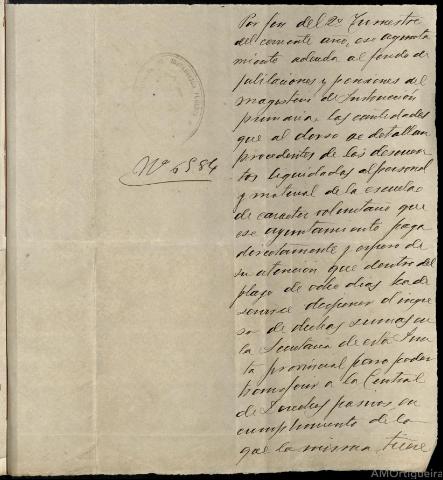 Nº 6584
Por fin del 2º Trimestre
del corriente año, ese ayunta
miento adeuda al fondo de
jubilaciones y pensiones del
magisterio de Instrucción
primaria, las cantidades
que al dorso se detallan
procedentes de los descuen
tos liquidados al personal
y material de la escuelas
de carácter voluntario que
ese ayuntamiento paga
directamente y espero de
su atención que dentro del
plazo de ocho dias ha de
servirse disponer el ingre
so de dichas sumas en
la Secretaria de esta Jun
ta provincial para poder
transferir a la Central
de Derechos pasivos en
cumplimiento de lo
que la misma tiene
AMOrtigueira